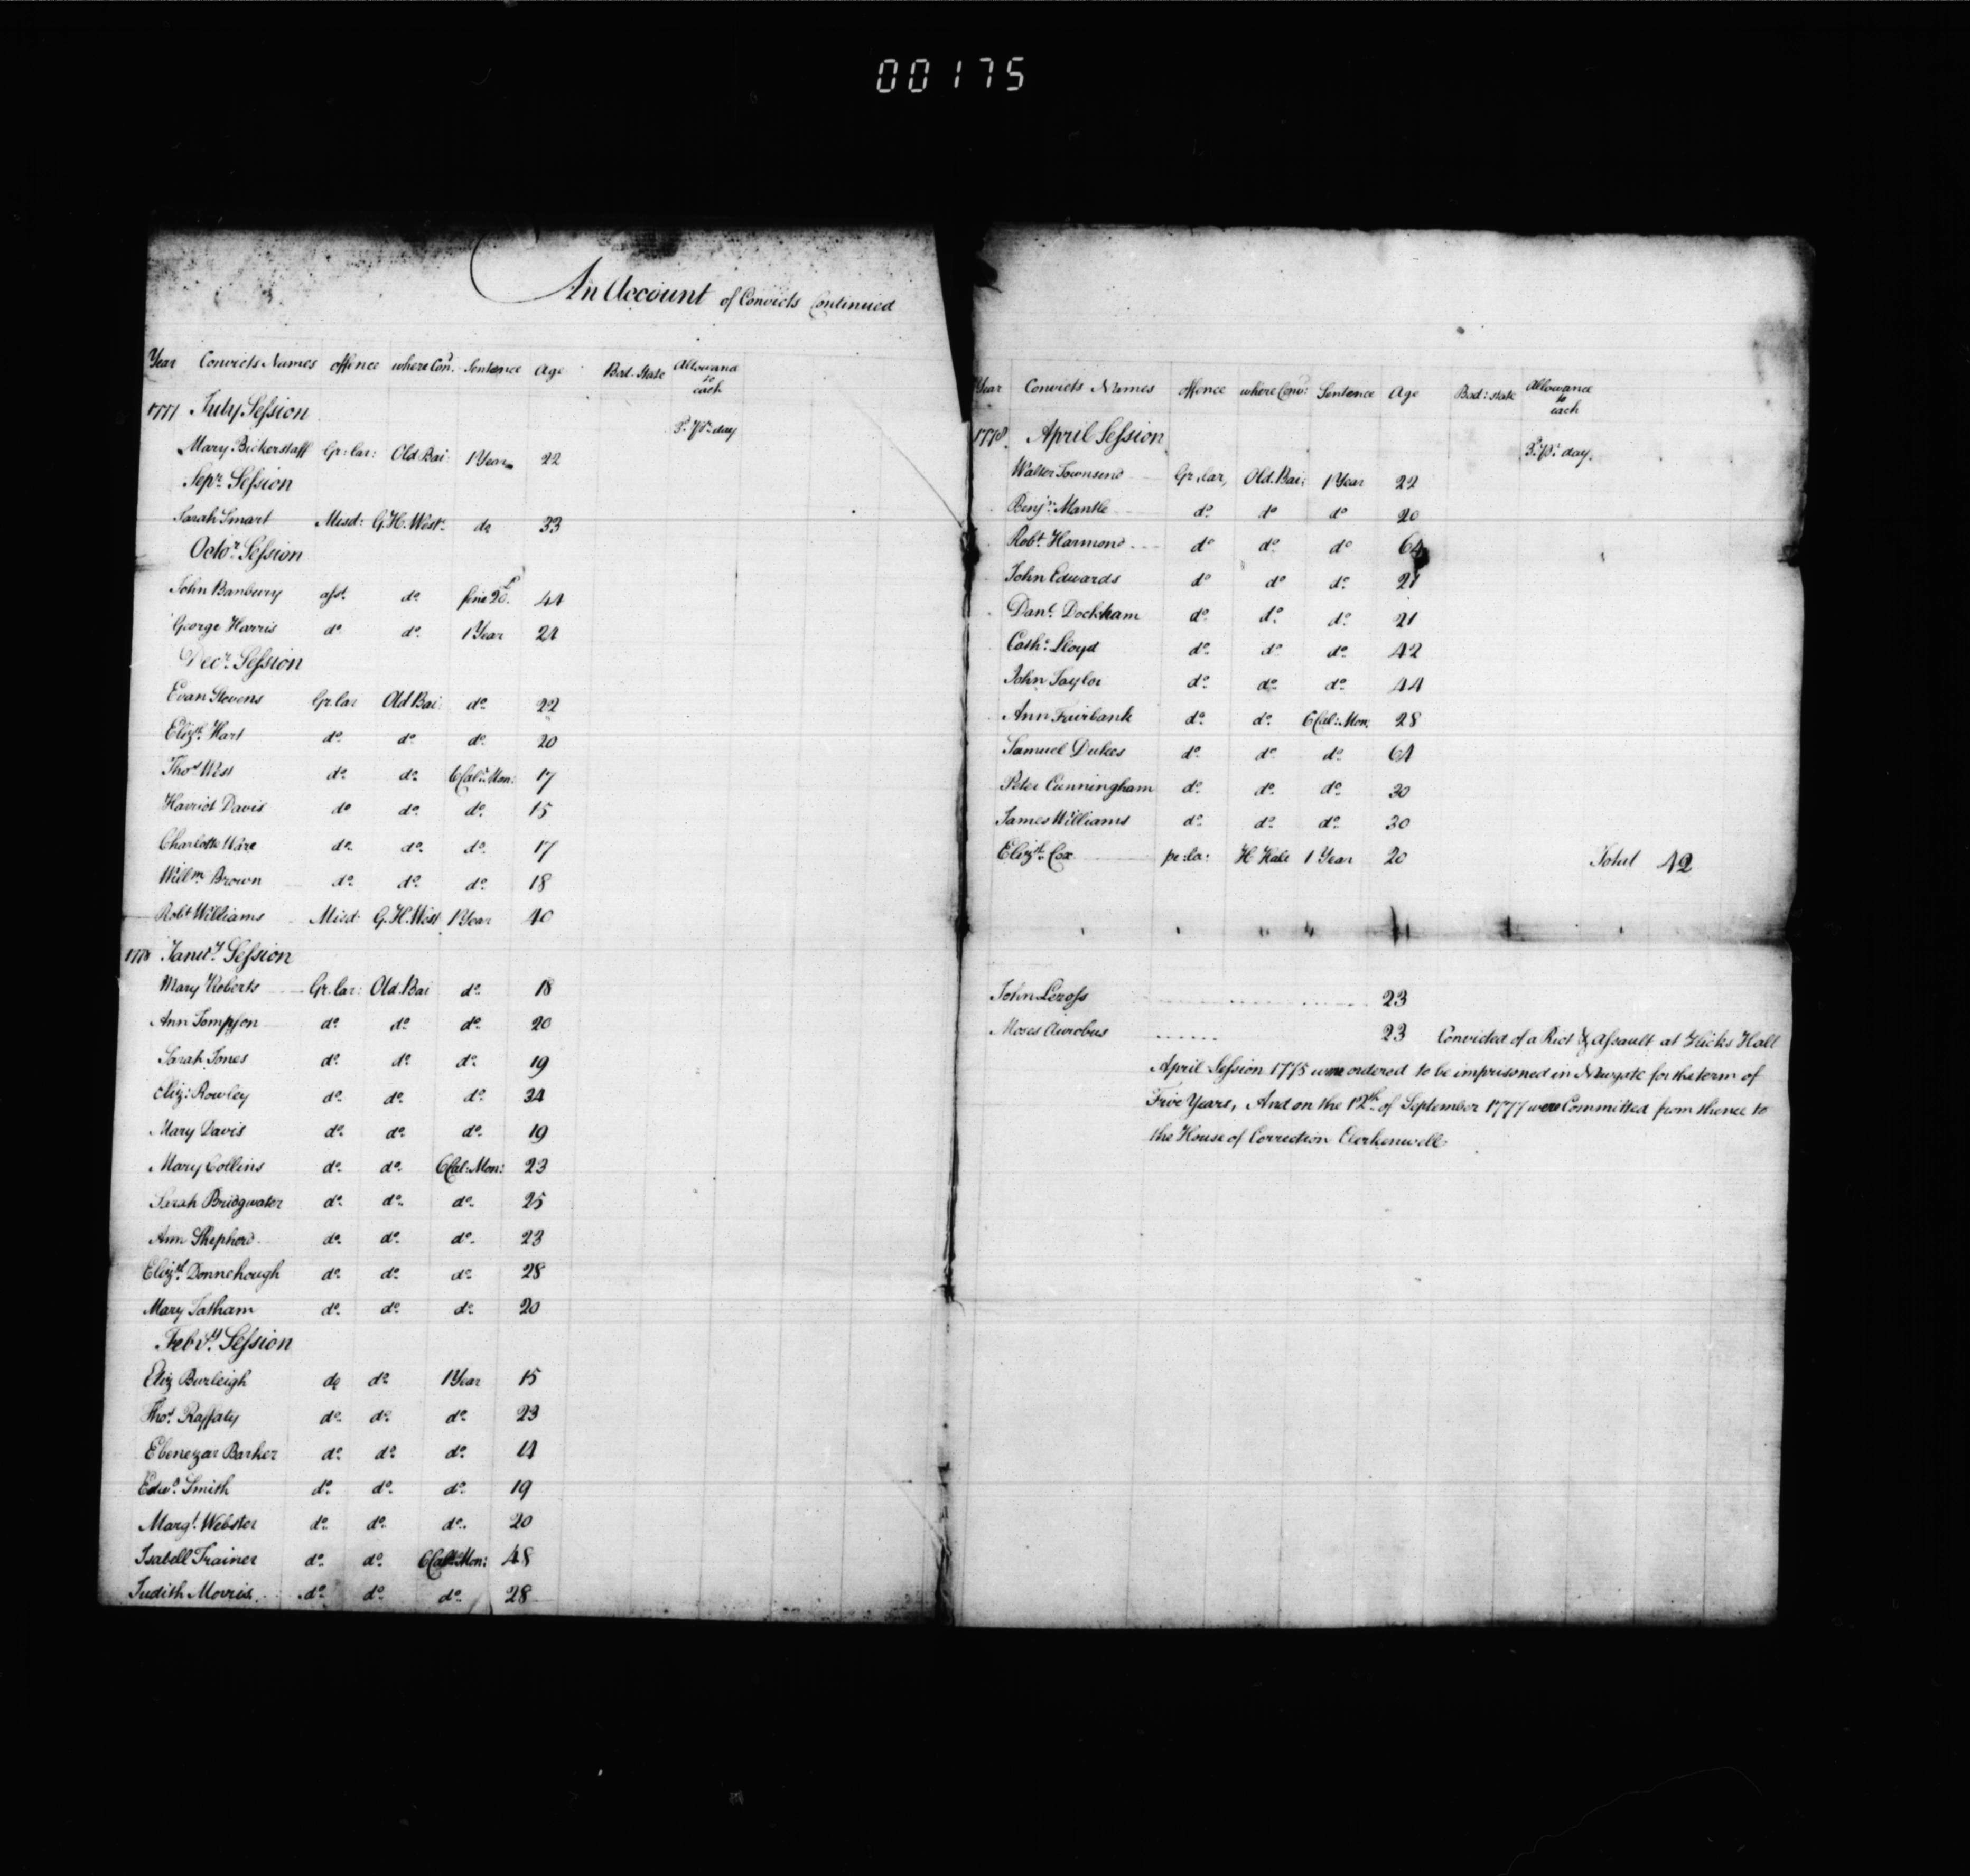 00175
An Account of Convicts Continued
Year Convicts Names offence where Con.d Sentence Age Bod. State Allowance to each
1777 July Session P. Pr. day
Mary Bickerstaff Gr: lar: Old Bai: 1 Year 22
Sepr. Session
Sarah Smart Misd: G.H. Westr. do 33
Octor. Session
John Banbury asst. do. fine 20. 44
George Harris do. do. 1 Year 24
Decr. Session
Evan Stevens Gr. lar Old Bai: do. 22
Elizth. Hart do. do. do. 20
Thos. West do. do. 6 Calr. Mon: 17
Harriot Davis do do. do. 15
Charlotte Ware do. do. do. 17
Willm. Brown do. do. do. 18
Robt. Williams Misd: G.H. West 1 Year 40
1778 Janry. Session
Mary Roberts Gr. lar: Old. Bai do. 18
Ann Tompson do. do. do. 20
Sarah Jones do. do. do. 19
Eliz: Rowley do. do. do. 34
Mary Davis do. do. do. 19
Mary Collins do. do. 6 Cal: Mon: 23
Sarah Bridgwater do. do. do. 25
Ann Shepherd do. do. do. 23
Elizth. Donnehough do. do. do. 28
Mary Tatham do. do. do. 20
Febry. Session
Eliz Burleigh do do. 1 Year 15
Thos. Raffaty do. do. do. 23
Ebenezar Barker do. do. do. 14
Edwd. Smith do. do. do. 19
Margt. Webster do. do. do. 20
Isabell Trainer do. do. 6 Cal: Mon: 48
Judith Morris do. do. do. 28
Year Convicts Names offence where Conv: Sentence Age Bod: state Allowance to each
1778. April Session P. Pr. day.
Walter Townsend Gr. lar, Old. Bai: 1 Year 22
Benjn. Mantle do. do do. 20
Robt. Harmond do do. do 64
John Edwards do do do. 21
Danl. Dockham do. do. do. 21
Cathe. Lloyd do. do. do. 42
John Taylor do. do. do. 44
Ann Fairbank do. do. 6 Cal: Mon. 28
Samuel Dukes do. do. do. 64
Peter Cunningham do. do. do. 30
James Williams do. do. do. 30
Elizth. Cox pe: la: H Hall 1 Year 20 Total 42
John Leross 23
Moses 23 Convicted of a Riot & Assault at Hicks Hall
April Session 1775 were ordered to be imprisoned in Newgate for the term of
Five Years, And on the 12th. of September 1777 were Committed from thence to
the House of Correction Clerkenwell.